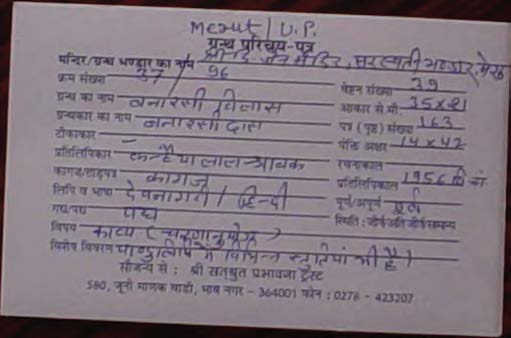 Merut / U.P.
ग्रन्थ परिचय-पत्र
मन्दिर/ग्रन्थ भण्डार का नाम दि. जैन मंदिर, सरस्वती भण्डार, मेरठ
क्रम संख्या 37 / 96 वेष्टन संख्या 39
ग्रन्थ का नाम बनारसी विलास आकार से.मी. 35x21
ग्रन्थकार का नाम बनारसी दास पत्र (पृष्ठ) संख्या 163
टीकाकार — पंक्ति अक्षर 14x42
प्रतिलिपिकार कन्हैयालाल श्रावक रचनाकाल
कागज/ताड़पत्र कागज प्रतिलिपिकाल 1956 वि सं.
लिपि व भाषा देवनागरी / हिन्दी पूर्ण/अपूर्ण पूर्ण
गद्य/पद्य पद्य स्थिति : जीर्ण/अति जीर्ण/सामान्य
विषय काव्य (चरणानुयोग)
विशेष विवरण पाण्डुलिपि में विभिन्न स्तुतियां भी है।
सौजन्य से : श्री सत्श्रुत प्रभावना ट्रस्ट
580, जूनी माणक वाडी, भाव नगर - 364001 फोन : 0278 - 423207